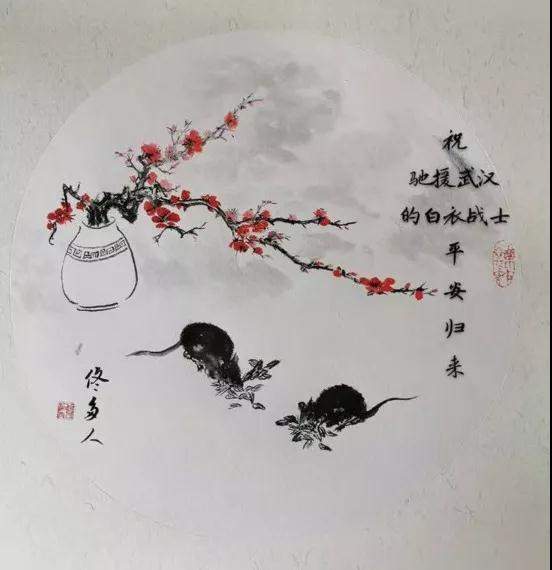 祝
驰援武汉
的白衣战士
平
安
归
来
佟多人